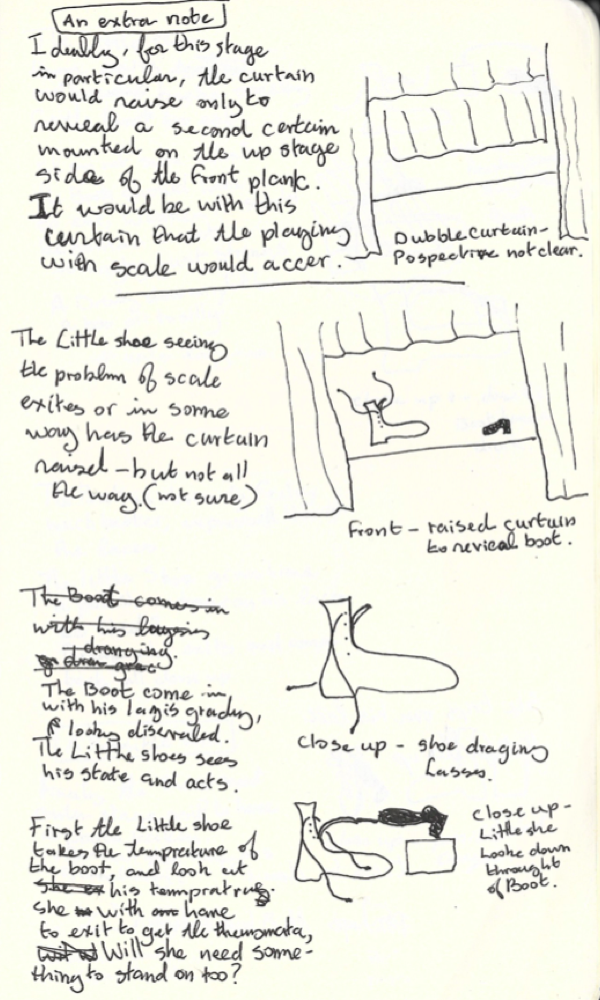 An extra note
Ideally, for this stage
in particular, the curtain
would raise only to
reveal a second certain
mounted on the up stage
side of the front plank.
It would be with this
curtain that the playing
with scale would accer.
Dubble curtain-
Pospective not clear.
The Little shoe seeing
the problem of scale
exites or in some
way has the curtain
raised - but not all
the way. (not sure)
Front - raised curtain
to revical boot.
The Boot comes in
with his
draging.
The Boot come in
with his lagis grading,
& looks diserraled.
The Litthe shoes sees
his state and acts.
Close up - shoe draging
Lasses.
First the Little shoe
takes the temprature of
the boot, and look at
his tempratrue.
she with hane
to exit to get the themomata,
Will she need some-
thing to stand on too?
Close up-
Little she
Looke down
throught
of Boot.